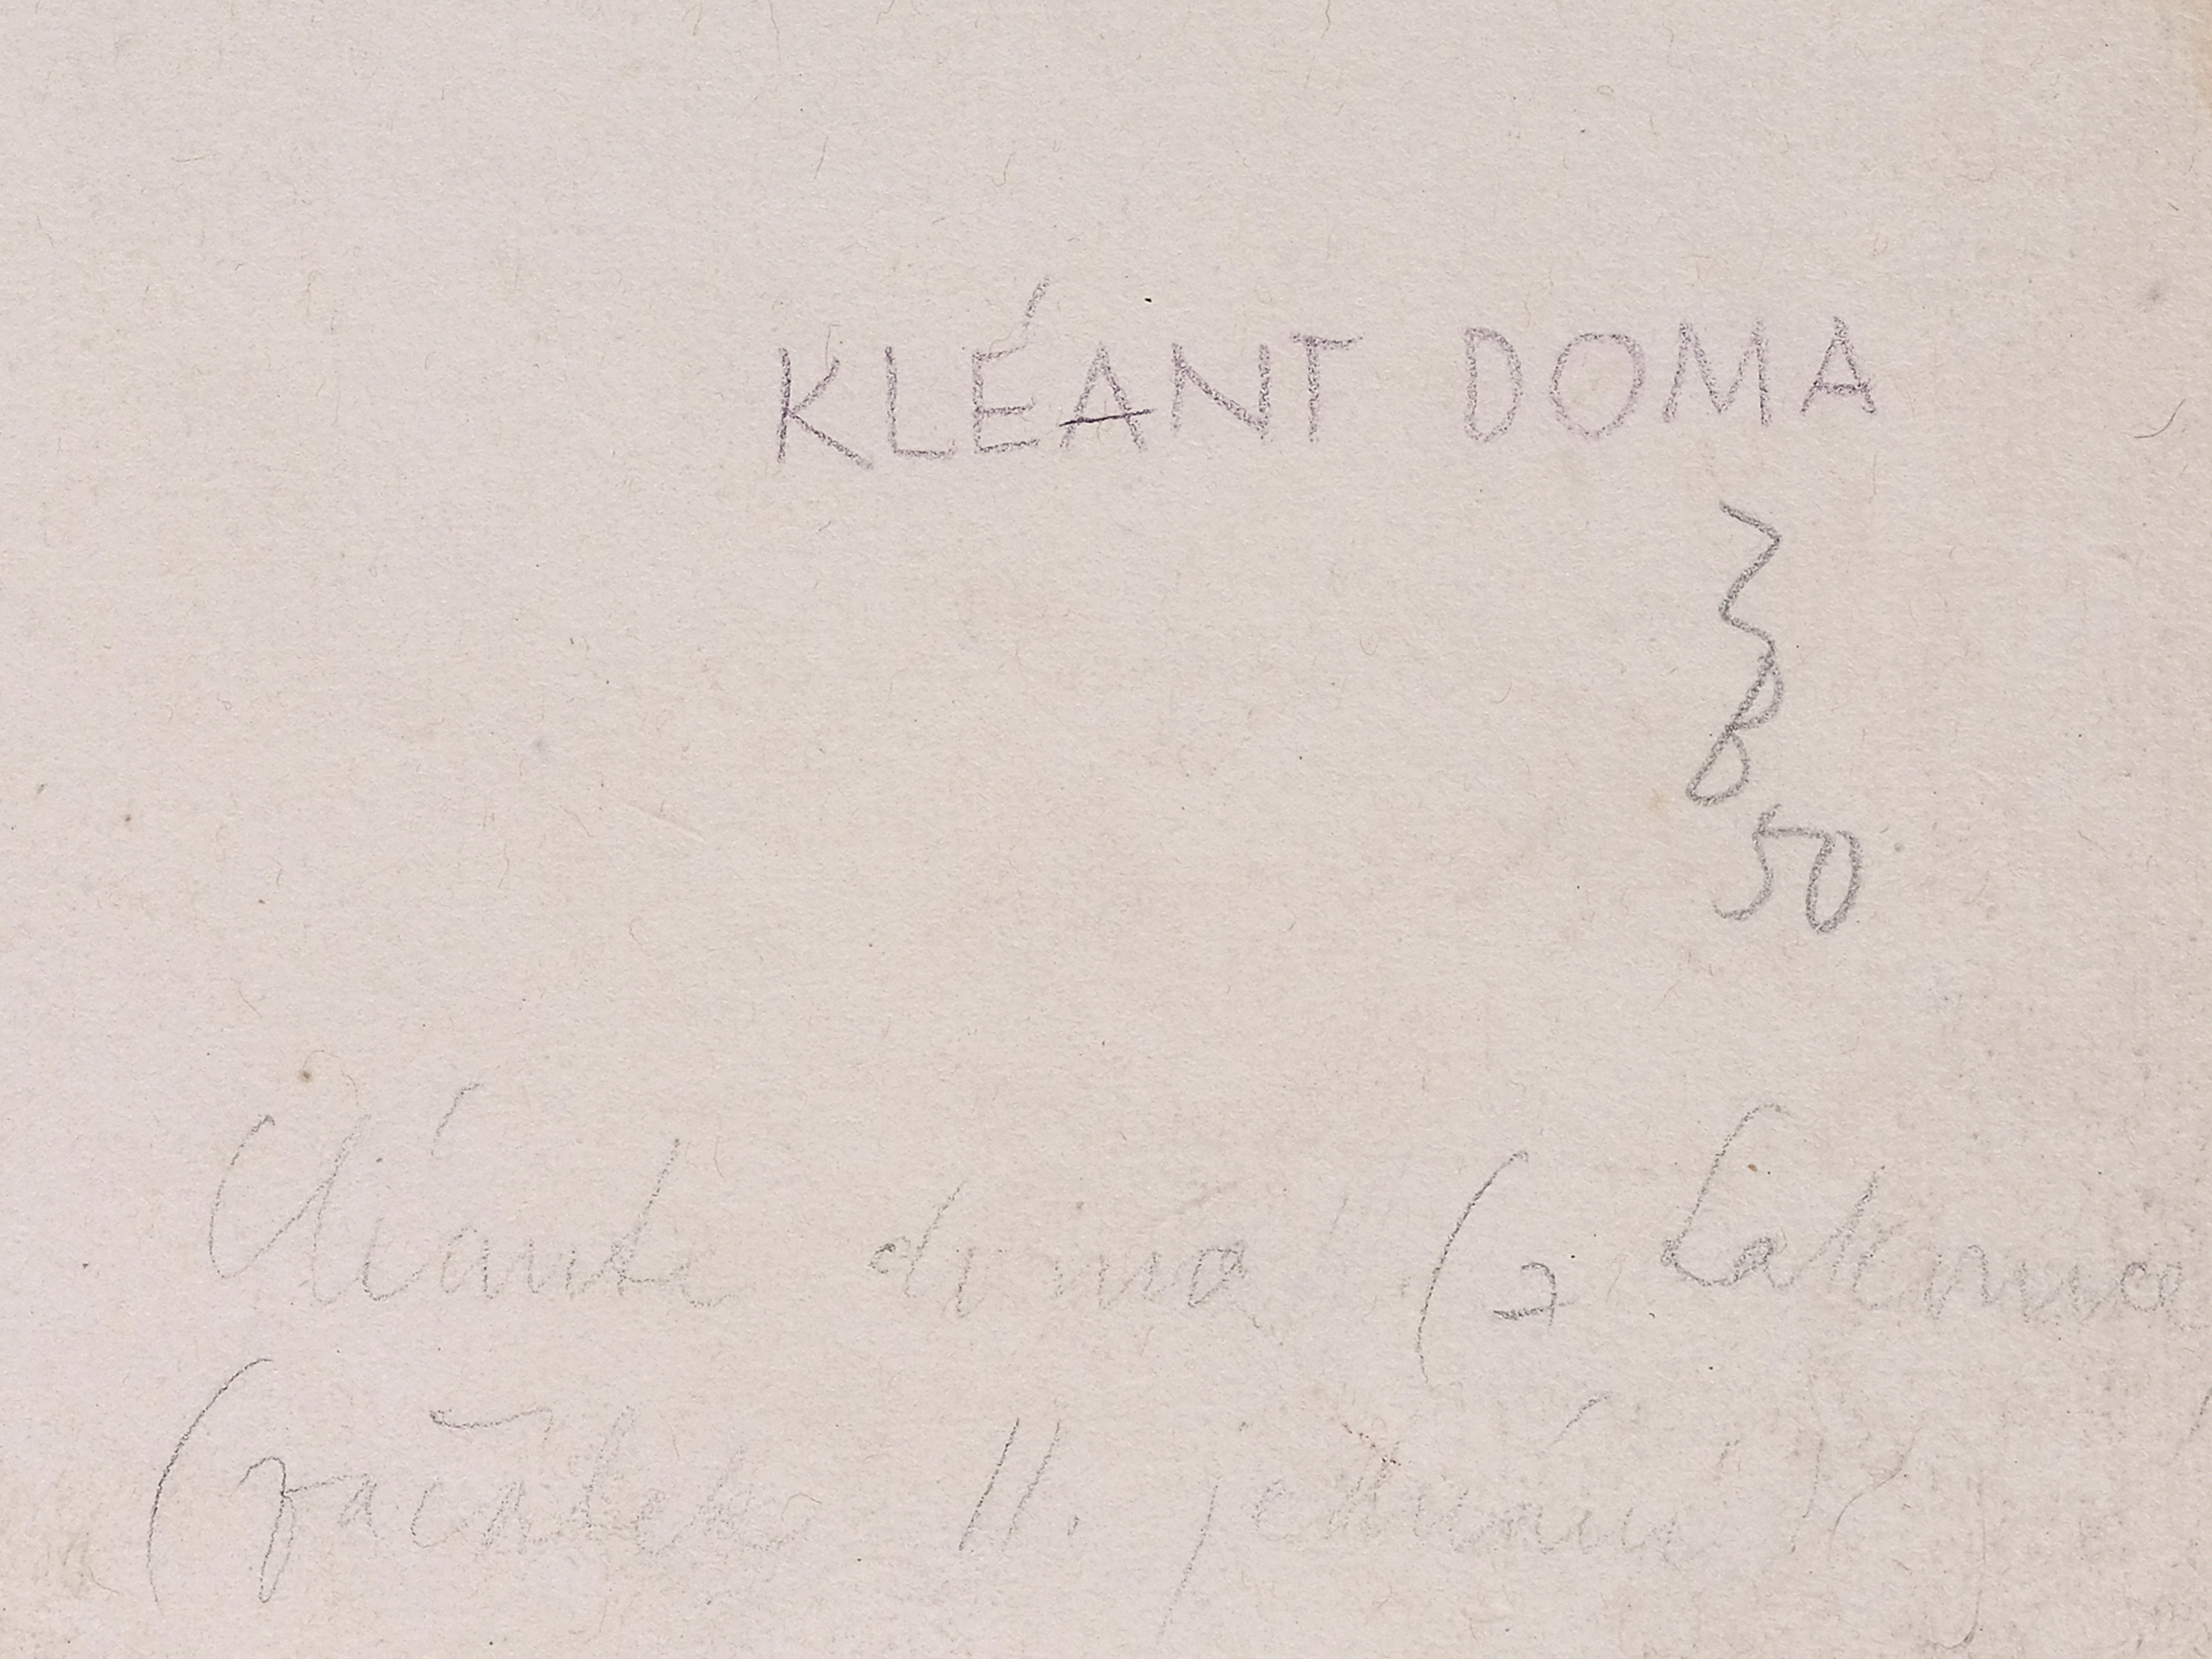 KLÉANT DOMA
ZB
50
Cléante doma (z Lakomce
(začátek II. jednání)